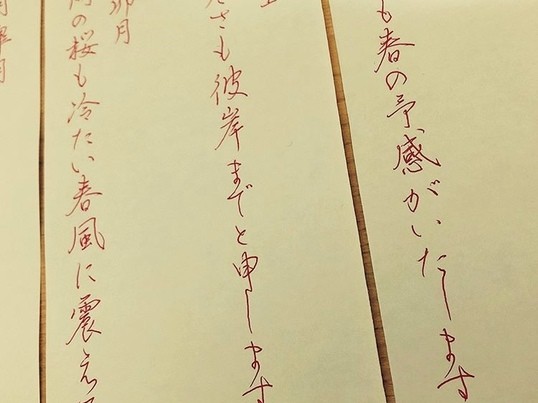 も春の予感がいたします
さも彼岸までと申します
卯月
の桜も冷たい春風に震え
皐月